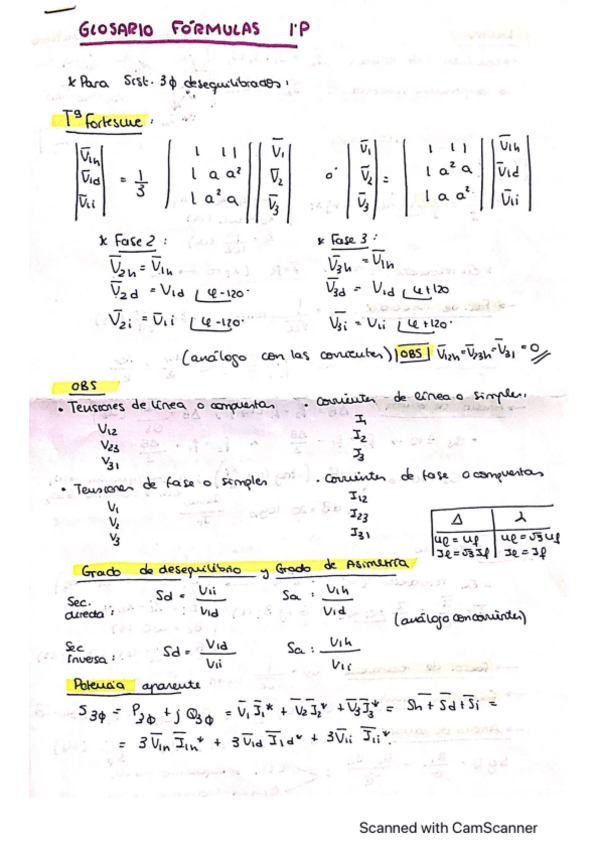 GLOSARIO FÓRMULAS 1ºP
* Para Sist. 3φ desequilibrados:
Tª Fortescue:
|V̅1h| |1 1 1| |V̅1| |V̅1| |1 1 1| |V̅1h|
|V̅1d| = 1/3 |1 a a²| |V̅2| o' |V̅2| = |1 a² a| |V̅1d|
|V̅1i| |1 a² a| |V̅3| |V̅3| |1 a a²| |V̅1i|
* Fase 2: * Fase 3:
V̅2h = V̅1h V̅3h = V̅1h
V̅2d = V1d ∠φ-120· V̅3d = V1d ∠φ+120
V̅2i = V̅1i ∠φ-120· V̅3i = V1i ∠φ+120·
(análogo con las corrientes) |OBS| V̅12h=V̅23h=V̅31 = 0
OBS
• Tensiones de línea o compuestas • Corrientes de línea o simples.
V12 I1
V23 I2
V31 I3
• Tensiones de fase o simples • Corrientes de fase o compuestas
V1 I12
V2 I23
V3 I31
Δ ⅄
Ul = Uf Ul = √3 Uf
Il = √3 If Il = If
Grado de desequilibrio y Grado de Asimetría
Sec. directa: Sd = V̅1i / V1d Sa: V1h / V1d (análogo con corrientes)
Sec inversa: Sd = V1d / V1i Sa: V1h / V1i
Potencia aparente
S3φ = P3φ + j Q3φ = V̅1 I̅1* + V̅2 I̅2* + V̅3 I̅3* = S̅h + S̅d + S̅i =
= 3 V̅1h I̅1h* + 3 V̅1d I̅1d* + 3 V̅1i I̅1i*.
Scanned with CamScanner